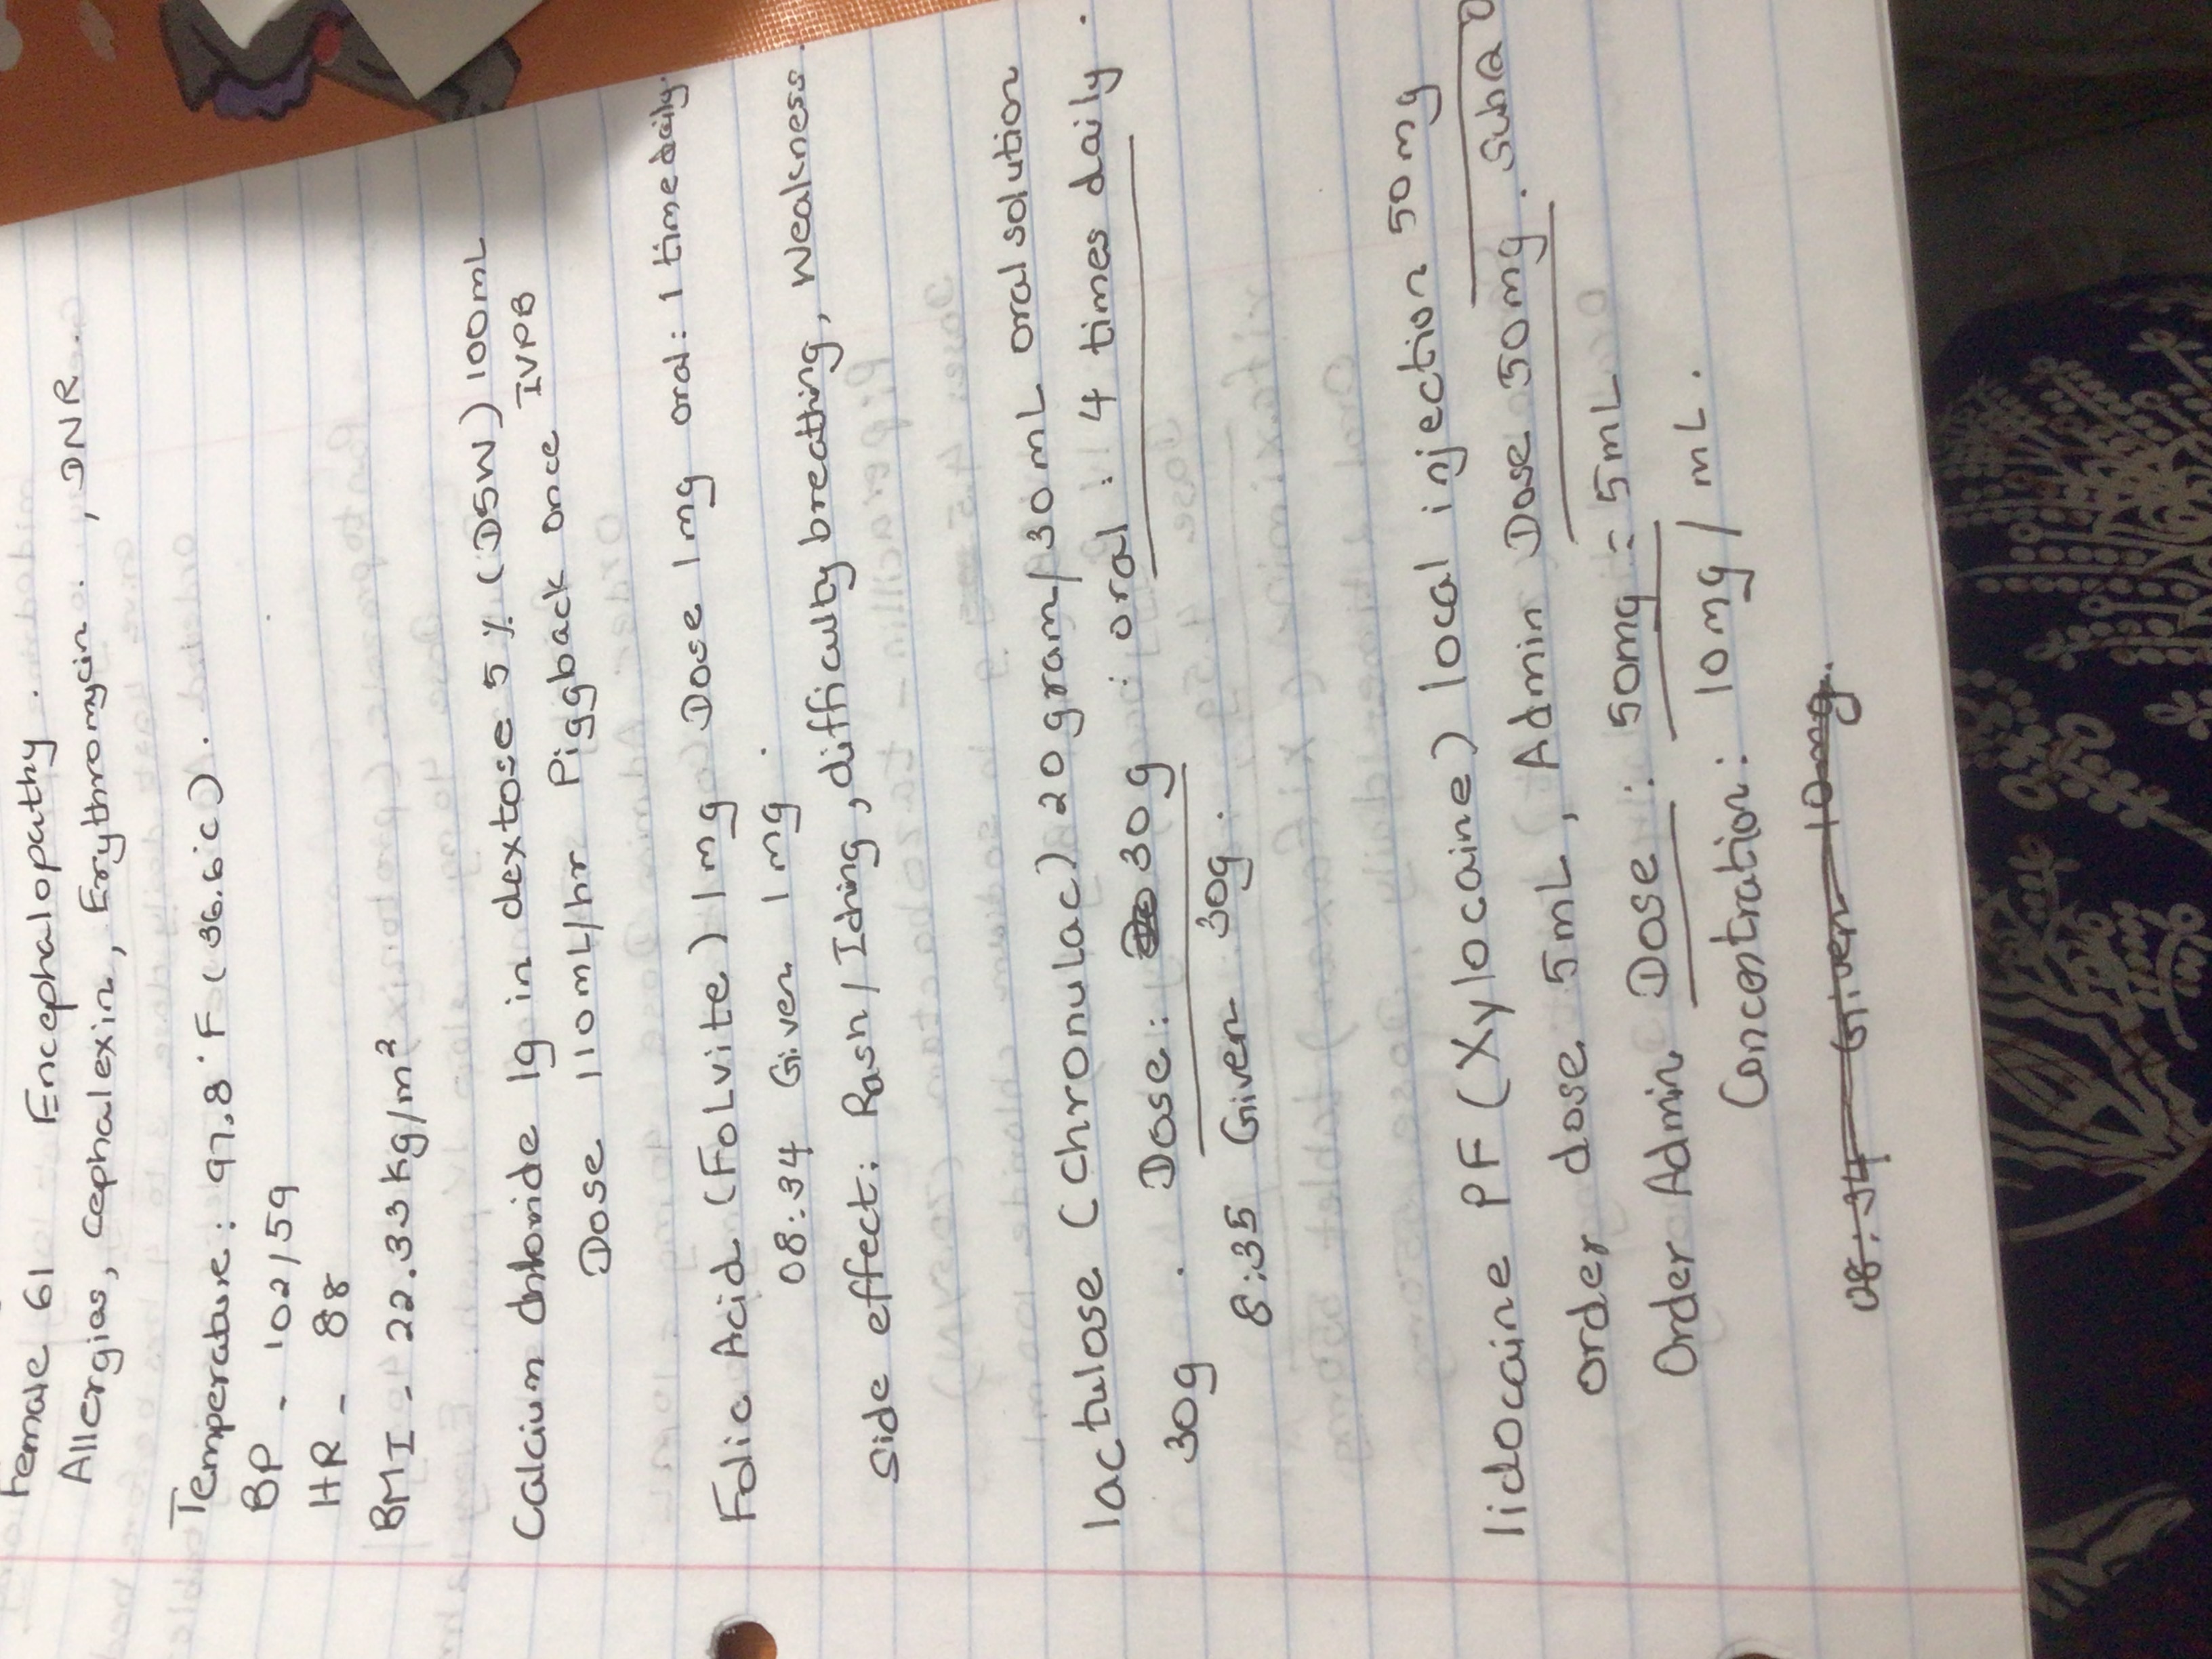 Female 61 Encephalopathy.
Allergies, cephalexin, Erythromycin. , DNR.
Temperature: 97.8°F (36.6°C).
BP - 102/59
HR - 88
BMI - 22.33 kg/m²
Calcium chloride 1g in dextose 5% (D5W) 100mL
Dose 110 mL/hr Piggback once IVPB
Folic Acid (FoLvite) 1mg Dose 1mg oral: 1 time daily.
08:34 Given 1mg.
Side effect: Rash / Itching, difficulty breathing, Weakness.
lactulose (Chronulac) 20 gram/30 mL oral solution
30g. Dose: 30g : oral: 4 times daily.
8:35 Given 30g.
lidocaine PF (Xylocaine) local injection 50mg
order dose 5mL, Admin Dose 50mg. SubQ
Order Admin Dose: 50mg = 5mL
Concentration: 10mg/mL.
08:34 Given 10mg.